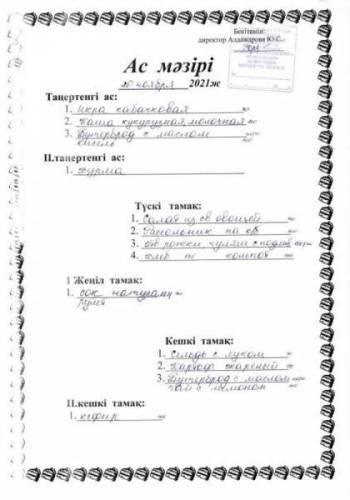 Бекітемін:
директор
Ас мәзірі
ноября 2021ж
Таңертенгі ас:
1. Икра кабачковая
2. Каша кукурузная молочная
3. Бутерброд с маслом
кисель
II.таңертенгі ас:
1. хурма
Түскі тамақ:
1. Салат из св овощей
2. Рассольник на
3. отв рожки, гуляш с подлив
4. хлеб компот
I Жеңіл тамақ:
1. сок
Кешкі тамақ:
1. Сельдь с луком
2. Картоф жареный
3. Бутерброд с маслом
чай с лимоном
II.кешкі тамақ:
1. кефир